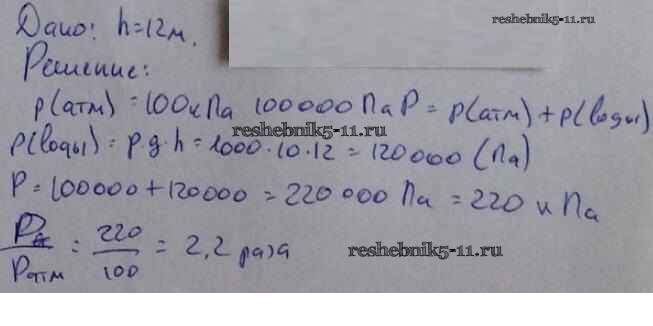 reshebnik5-11.ru
Дано: h=12м.
Решение:
p(атм) = 100кПа 100000 Па P = p(атм) + p(воды)
reshebnik5-11.ru
p(воды) = p·g·h = 1000·10·12 = 120000 (Па)
P = 100000 + 120000 = 220 000 Па = 220 кПа
P / Pатм = 220 / 100 = 2,2 раза
reshebnik5-11.ru